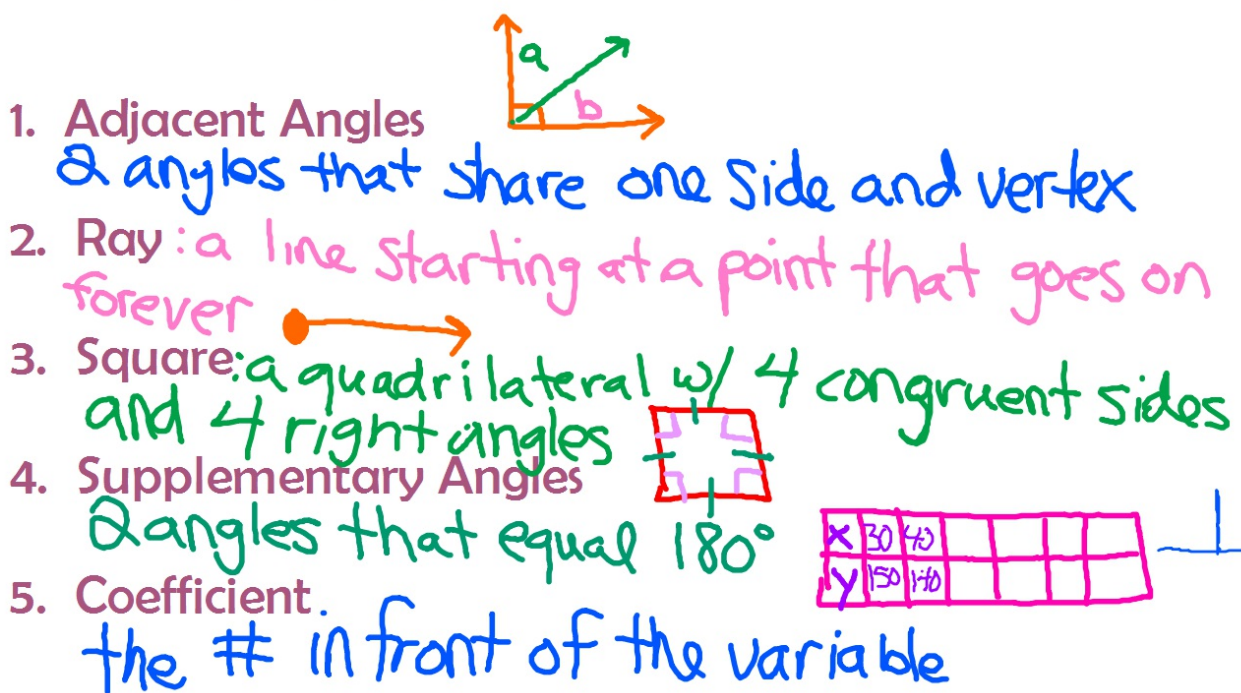 a
b
1. Adjacent Angles
2 angles that share one side and vertex
2. Ray : a line starting at a point that goes on
forever
3. Square : a quadrilateral w/ 4 congruent sides
and 4 right angles
4. Supplementary Angles
2 angles that equal 180°
x 30 40
y 150 140
5. Coefficient
the # in front of the variable